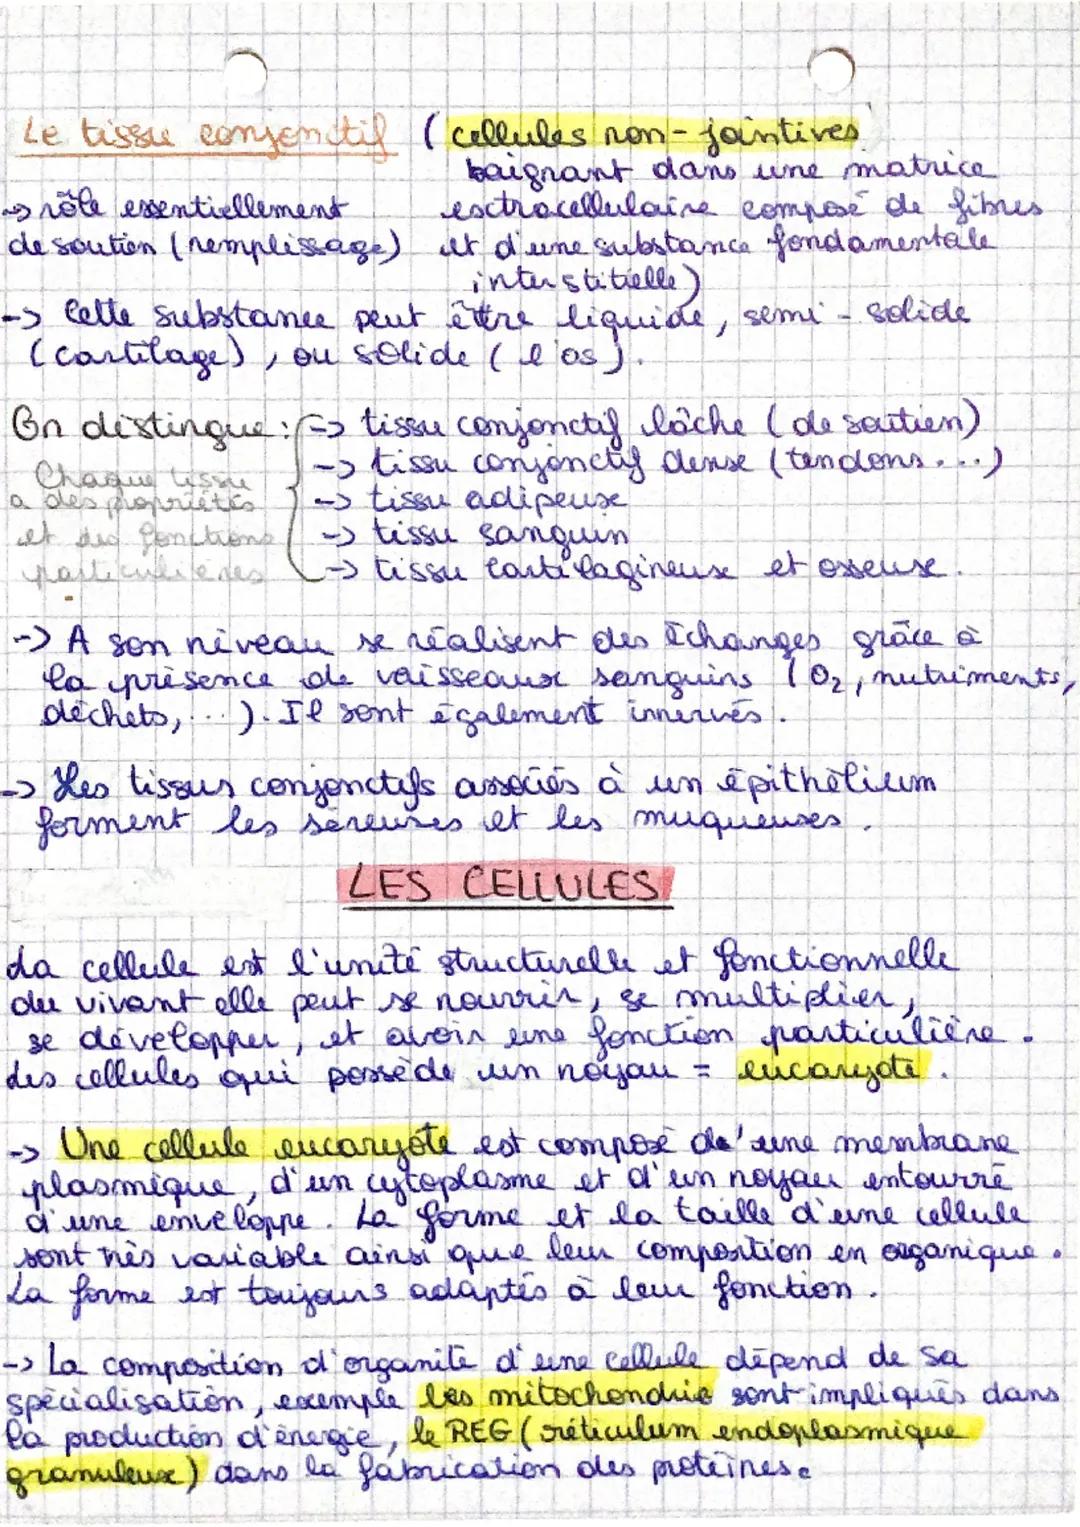 Le tissu conjonctif ( cellules non-jointives
baignant dans une matrice
-> rôle essentiellement extracellulaire composé de fibres
de soutien (remplissage) et d'une substance fondamentale
interstitielle)
-> Cette substance peut être liquide, semi-solide
(cartilage), ou solide (l'os).
On distingue : -> tissu conjonctif lâche (de soutien)
-> tissu conjonctif dense (tendons...)
Chaque tissu
a des propriétés -> tissu adipeux
et des fonctions -> tissu sanguin
particulières -> tissu cartilagineux et osseux.
-> A son niveau se réalisent des échanges grâce à
la présence de vaisseaux sanguins (O2, nutriments,
déchets, ...). Il sont également innervés.
-> Les tissus conjonctifs associés à un épithélium
forment les séreuses et les muqueuses.
LES CELLULES
La cellule est l'unité structurelle et fonctionnelle
du vivant elle peut se nourrir, se multiplier,
se développer, et avoir une fonction particulière.
Les cellules qui possède un noyau = eucaryote.
-> Une cellule eucaryote est composé de'une membrane
plasmique, d'un cytoplasme et d'un noyau entourré
d'une enveloppe. La forme et la taille d'une cellule
sont très variable ainsi que leur composition en organique.
La forme est toujours adaptés à leur fonction.
-> La composition d'organite d'une cellule dépend de sa
spécialisation, exemple les mitochondrie sont impliqués dans
la production d'énergie, le REG (réticulum endoplasmique
granuleux) dans la fabrication des protéines.